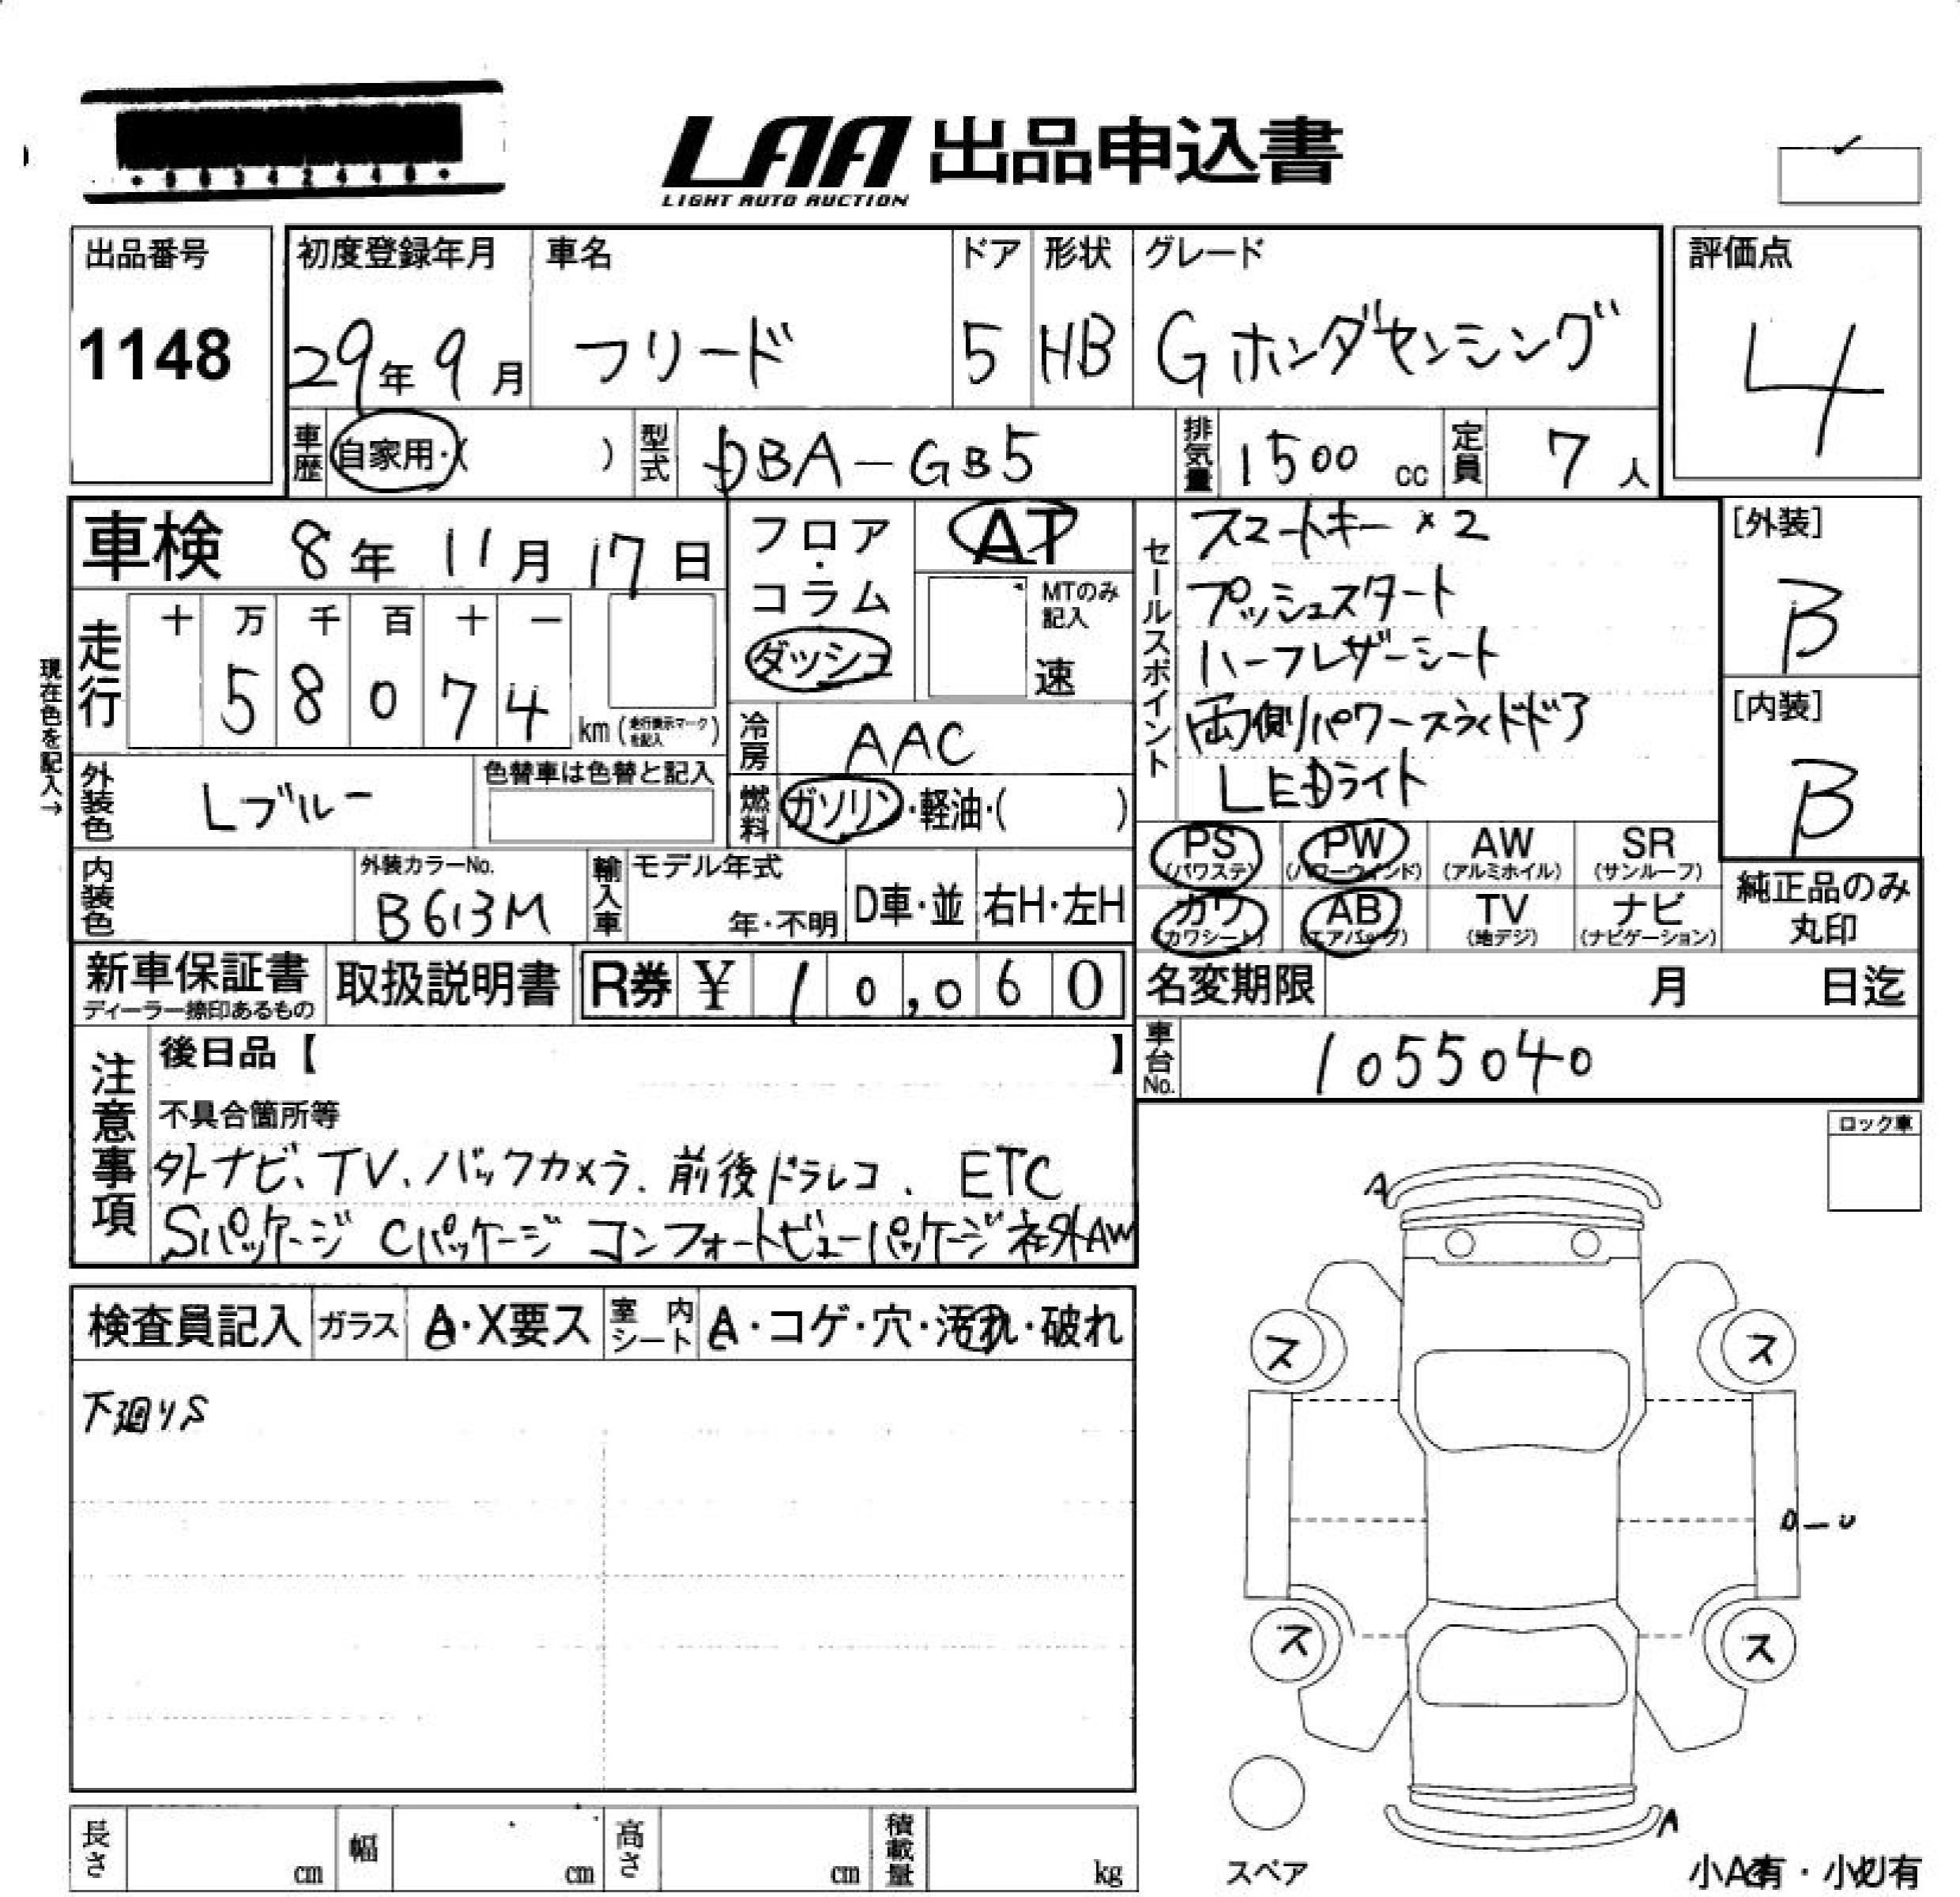 LAA 出品申込書
LIGHT AUTO AUCTION
出品番号
1148
初度登録年月
29年9月
車名
フリード
ドア
5
形状
HB
グレード
Gホンダセンシング
評価点
4
車歴
自家用・( )
型式
DBA-GB5
排気量
1500 cc
定員
7人
車検 8年11月17日
フロア・コラム
ダッシュ
AT
MTのみ記入
速
セールスポイント
スマートキー×2
プッシュスタート
ハーフレザーシート
両側パワースライドドア
LEDライト
[外装]
B
[内装]
B
現在色を記入→
走行
十 万 千 百 十 一
5 8 0 7 4
km (走行表示マークを記入)
冷房
AAC
外装色
Lブルー
色替車は色替と記入
燃料
ガソリン・軽油・( )
PS (パワステ)
PW (パワーウインド)
AW (アルミホイル)
SR (サンルーフ)
カワ (カワシート)
AB (エアバッグ)
TV (地デジ)
ナビ (ナビゲーション)
純正品のみ丸印
内装色
外装カラーNo.
B613M
輸入車
モデル年式
年・不明
D車・並
右H・左H
新車保証書
ディーラー捺印あるもの
取扱説明書
R券 ¥ 10,060
名変期限 月 日迄
車台No.
1055040
注意事項
後日品【 】
不具合箇所等
外ナビ、TV、バックカメラ、前後ドラレコ、ETC
Sパッケージ Cパッケージ コンフォートビューパッケージ 社外AW
ロック車
検査員記入
ガラス
A・X要ス
室内シート
A・コゲ・穴・汚れ・破れ
下廻りS
A
ス
ス
ス
ス
A
スペア
小A有・小U有
長さ cm
幅 cm
高さ cm
積載量 kg